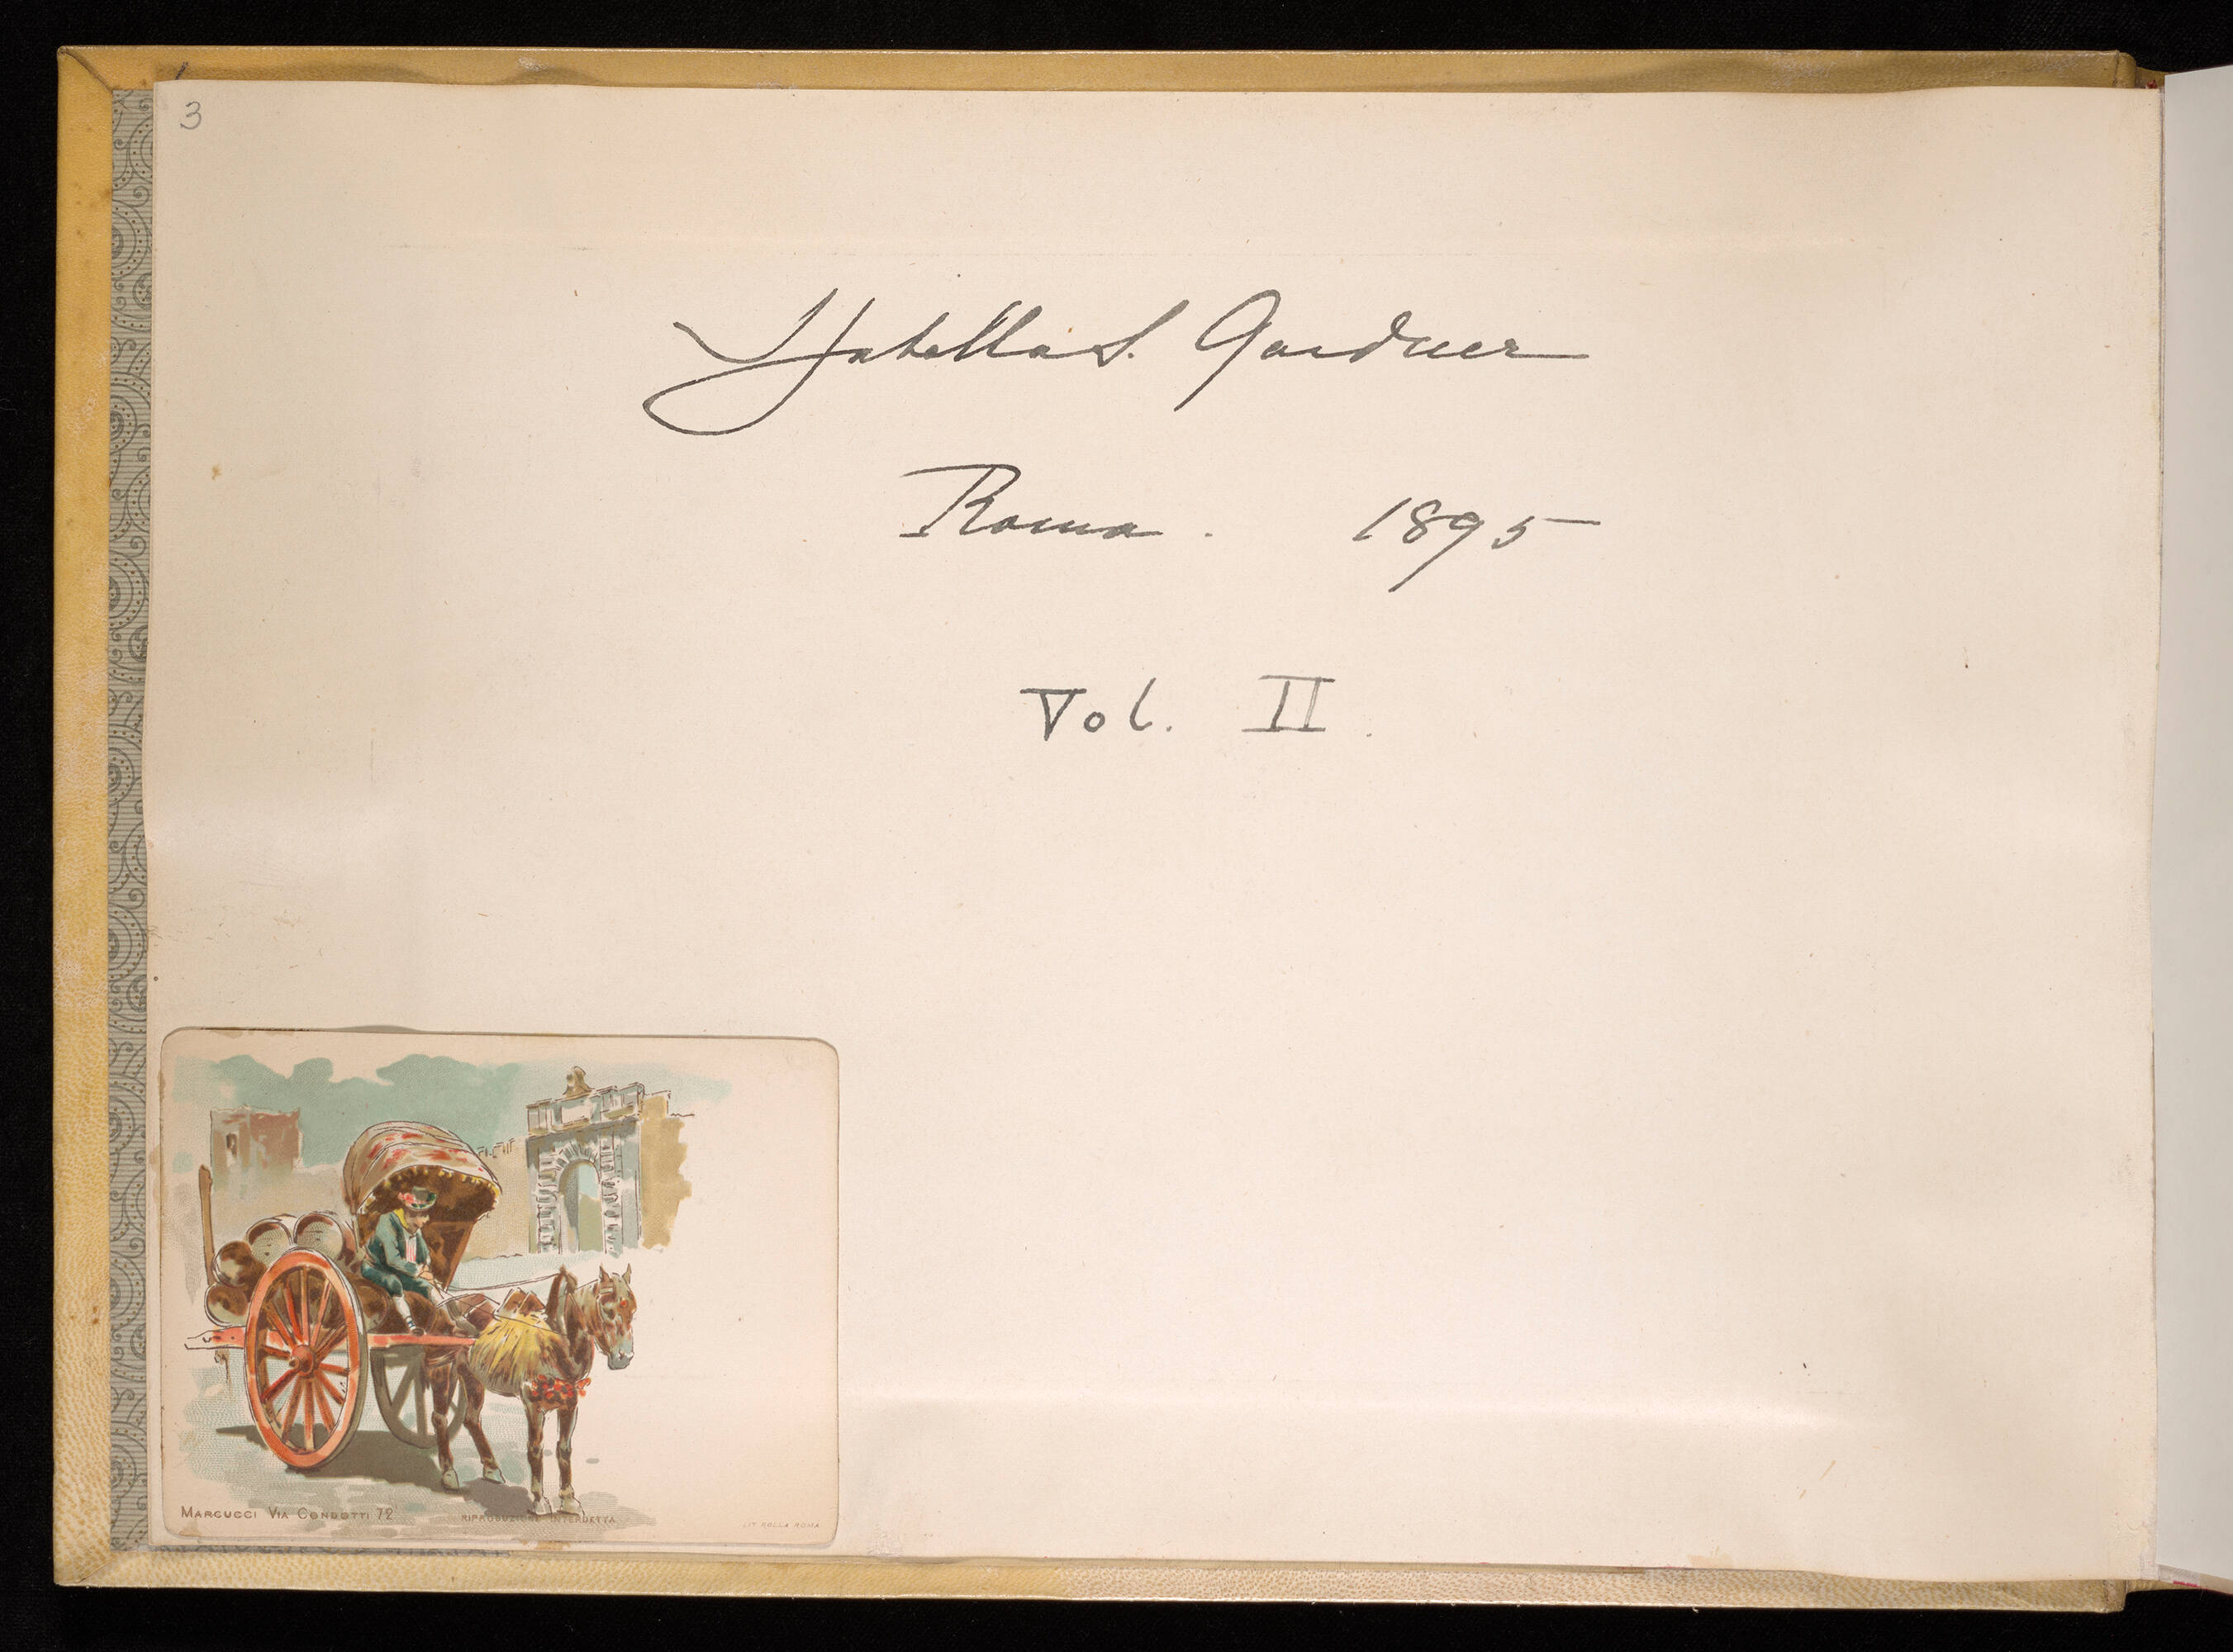 3
Isabella S. Gardner
Roma. 1895
Vol. II.
MARCUCCI VIA CONDOTTI 72
RIPRODUZIONE INTERDETTA
LIT. ROLLA ROMA